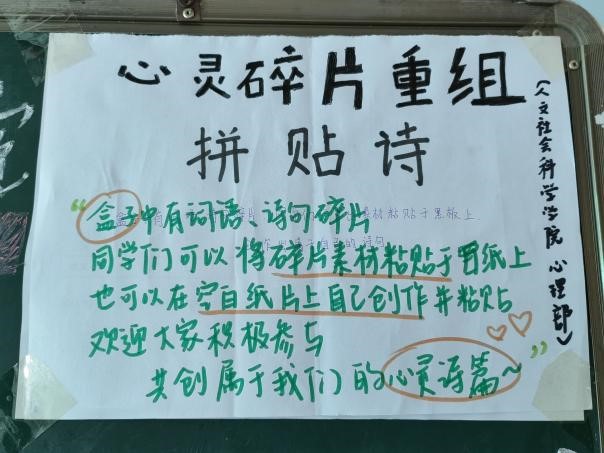 心灵碎片重组
拼贴诗
(人文社会科学学院 心理部)
“盒子中有词语、诗句碎片
同学们可以将碎片素材粘贴于白纸上
也可以在空白纸片上自己创作并粘贴
欢迎大家积极参与
共创属于我们的心灵诗篇~”